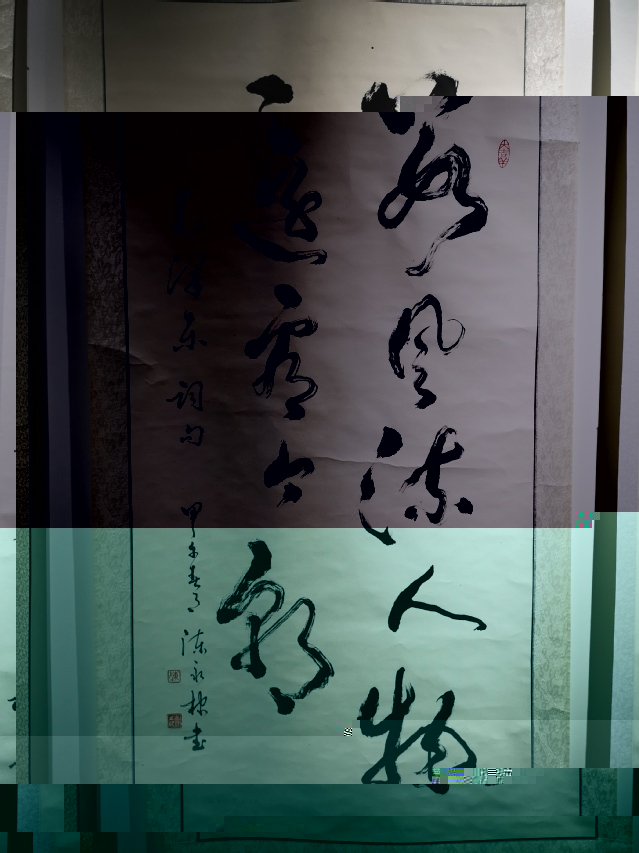 数风流人物
还看今朝
毛泽东词句 甲午春月 陈永书